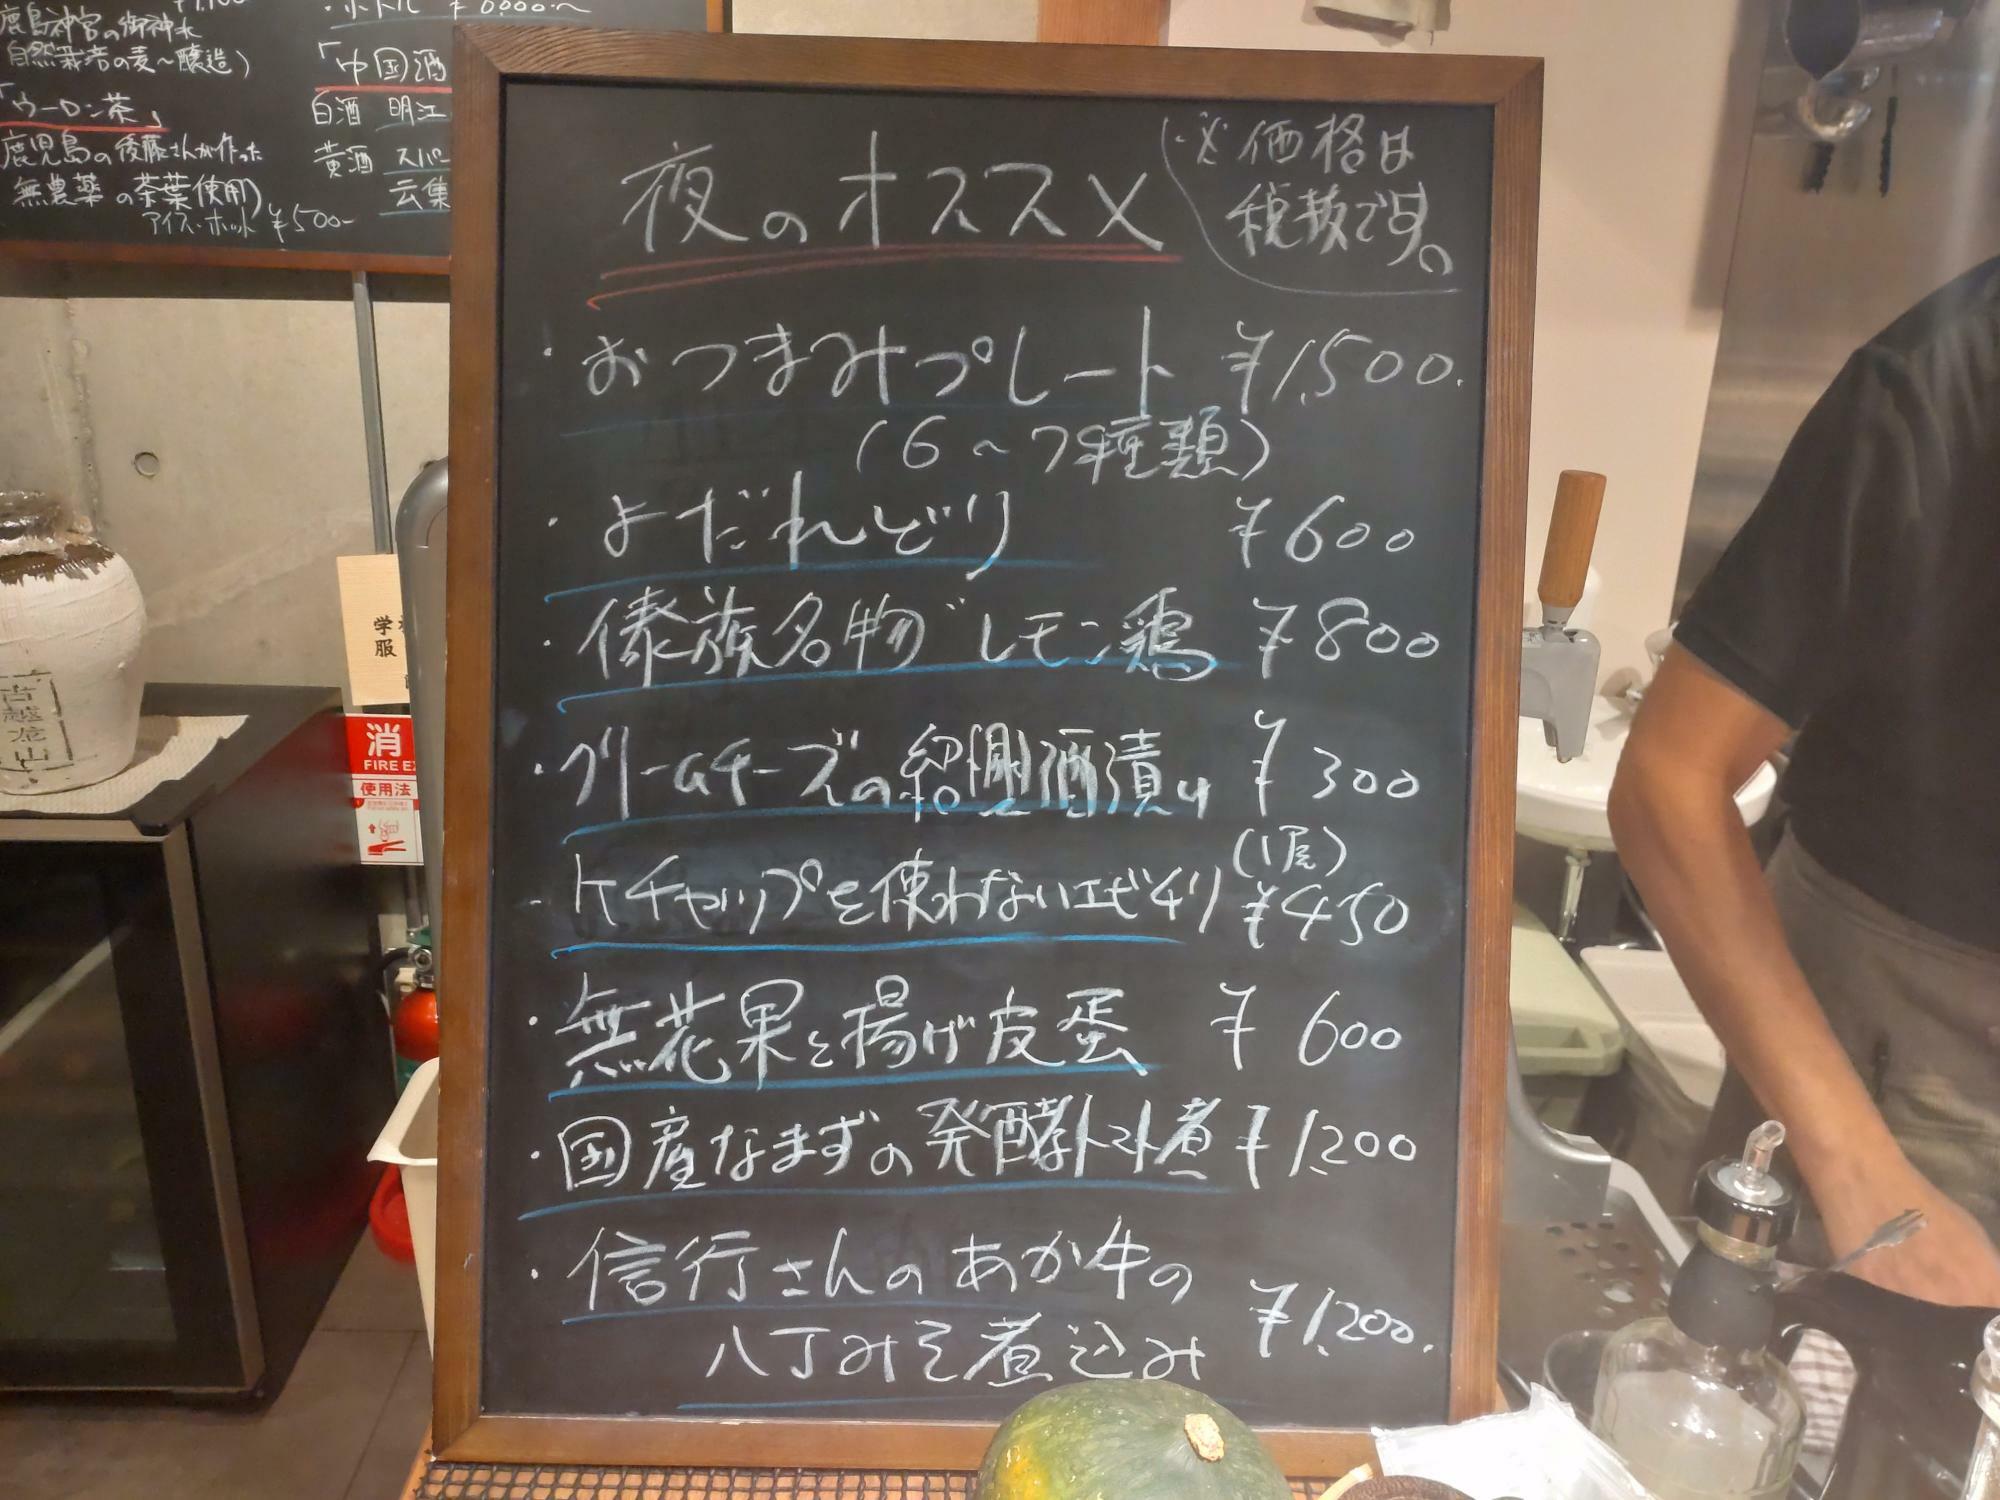 鹿島神宮の御神水
自然栽培の麦〜醸造)
「ウーロン茶」
鹿児島の後藤さんが作った
無農薬の茶葉使用)
アイス・ホット ¥500-
・ボトル ¥6,000〜
「中国酒
白酒 明江
黄酒 スパ
云集
夜のオススメ
※価格は
税抜です。
・おつまみプレート ¥1,500.
(6〜7種類)
・よだれどり ¥600
・傣族名物 レモン鶏 ¥800
・クリームチーズの紹興酒漬け ¥300
・ケチャップを使わないエビチリ (1尾) ¥450
・無花果と揚げ皮蛋 ¥600
・国産なまずの発酵トマト煮 ¥1,200
・信行さんのあか牛の
八丁みそ煮込み ¥1,200.
古越龙山
学
服
消
FIRE EX
使用法